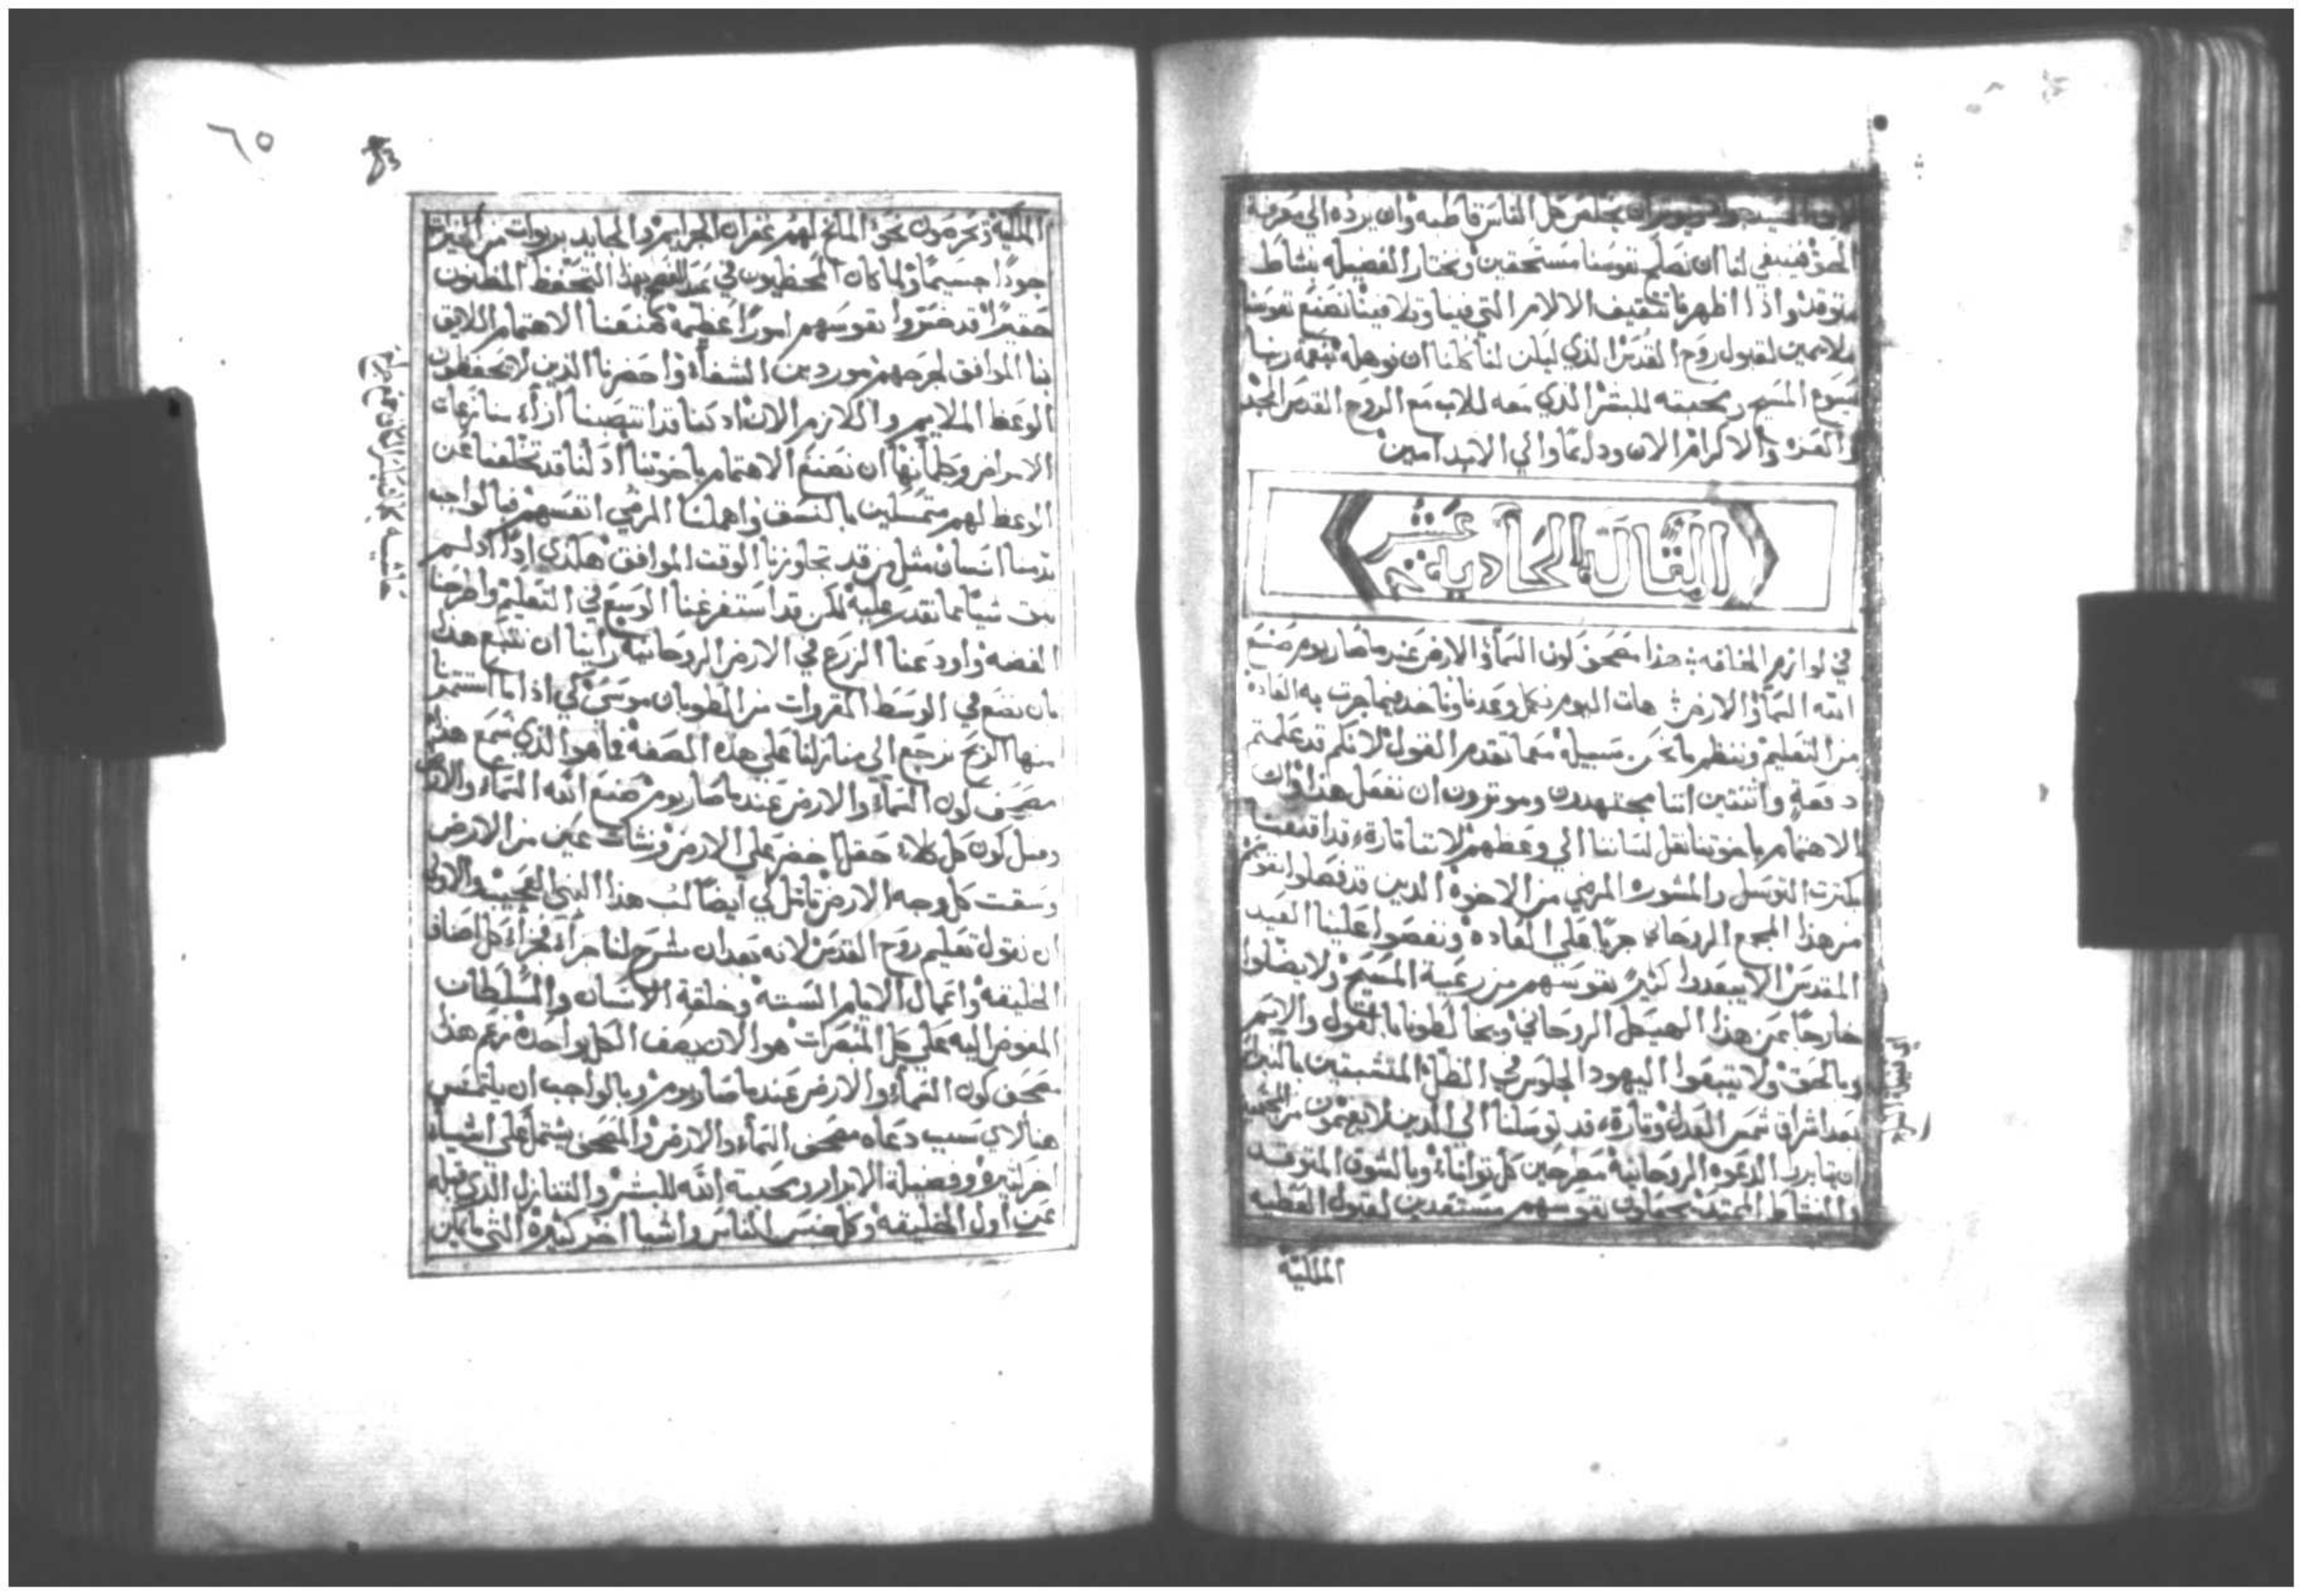 الحق فينبغي لنا ان نصلح نفوسنا مستحقين ونختار الفضيله بنشاط
متوقد واذا اظهرنا تثقيف الالام التي فينا وتلافينا نصنع نفوسنا
ملايمين لقبول روح القدس الذي ليكن لنا كلنا ان نوهله بنعمة ربنا
يسوع المسيح ومحبته للبشر الذي معه للاب مع الروح القدس المجد
والعزه والاكرام الان ودايما والي الابد امين
المقالة الحادية عشر
في لوازم المخافه هذا مصحف كون السمآء والارض عند ما صار يوم صنع
الله السمآء والارض هات اليوم نكمل وعدنا وناخذ فيما جرت به العادة
من التعليم وننظم ما نحن سبيله مما تقدم القول لانكم قد علمتم
دفعة واثنتين اننا مجتهدون وموثرون ان نفعل هذا وان
الاهتمام باخوتنا نقل لساننا الي وعظهم لاننا تارة قد اقنعنا
بكثرت التوسل والمشوره المرضي من الاخوة الذين قد فصلوا نفوسهم
من هذا المجمع الروحاني جريا علي العاده ونقصوا علينا العيد
المقدس الا يبعدوا كثيرً نفوسهم من رعية المسيح ولا يضلوا
خارجًا عن هذا الهيكل الروحاني ويخالطونا بالقول والاسم
وبالحق ولا يتبعوا اليهود الجلوس في الظل المتشبتين بالنبراس
بعد اشراق شمس العدل وتارة قد توسلنا الي الذين لا يعتمون من
ان يتابروا الدعوه الروحانية مطرحين كل توانا وبالشوق المتوقد
والنشاط الممتد يجعلون نفوسهم مستعدين لقبول العطيه
الملكية
٦٥
الملكية ويحرصون نحو المانح لهم غفران الجرايم والجايد بربوات من الخيرات
جودًا جسيمًا ولما كان
حقيرًا قد ضروا نفوسهم امورًا عظيمة صنعنا الاهتمام اللايق
بنا الموافق لجرحهم موردين الشفآء واحضرنا الذين لا يحفظون
الوعظ الملايم واللازم الان اذ كنا قد انتصبنا ازآء منازعات
الامراض وطمأنها ان نصنع الاهتمام باخوتنا اذ لنا قد تخلفنا عن
الوعظ لهم متمسكين بالنسق واهملنا المرضي انفسهم فبالواجب
يذمنا انسان مثل من قد تجاوزنا الوقت الموافق هكذي اذًا اذ لم
نبق شيًا مما نقدر عليه لكن قد استفرغنا الوسع في التعليم واطرحنا
الفضه واودعنا الزرع في الارض الروحانية راينا ان نتبع هذا
بان نضع في الوسط المقروات من الطوبان موسى كي اذا ما استثمرنا
منها الربح نرجع الي منازلنا علي هذه الصفه فما هو الذي نسمع هذا
مصحف كون السمآء والارض عند ما صار يوم صنع الله السمآء والارض
وقبل كون كل كلاء حقل اخضر علي الارض ونشات عين من الارض
وسقت كل وجه الارض تامل لي ايضًا لب هذا النبي العجيبه والاولي
ان نقول تعليم روح القدس لانه بعد ان شرح لنا جزآء فجزآء كل اصناف
الخليقه واعمال الايام السته وخلقة الانسان والسلطان
المفوض اليه علي كل المبصرات هوا الان يصف الكل بواحده زعم هذا
مصحف كون السمآء والارض عند ما صار يوم وبالواجب ان يلتمس
هنا لاي سبب دعاه مصحف السمآء والارض والمصحف يشتمل علي اشياء
اخر كثيره وفضيلة الابرار ومحبة الله للبشر والتنازل الذي قبله
عن اول الخليقه وكل جنس الناس واشيا اخر كثيرة التي ما يمكن